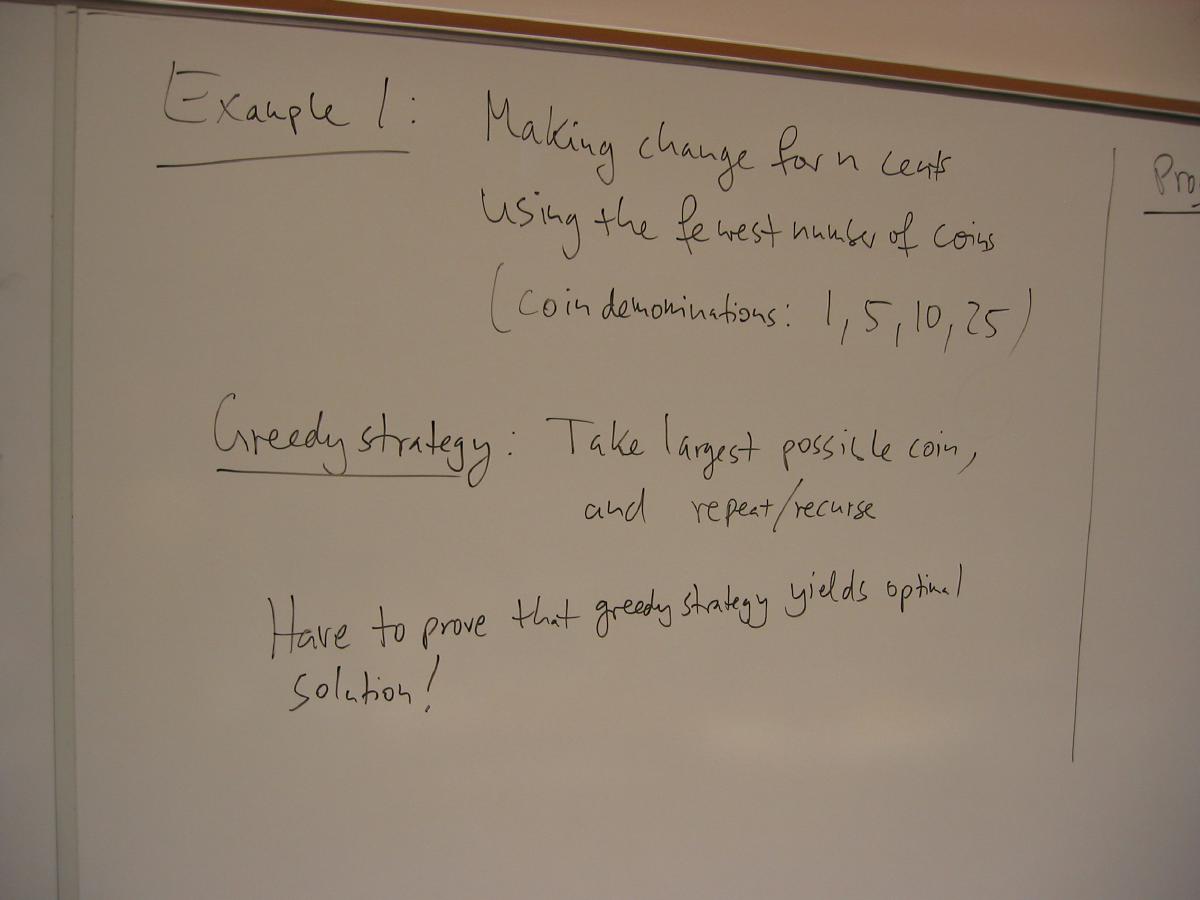 Example 1: Making change for n cents
using the fewest number of coins
(coin denominations: 1, 5, 10, 25)
Greedy strategy: Take largest possible coin,
and repeat/recurse
Have to prove that greedy strategy yields optimal
solution!